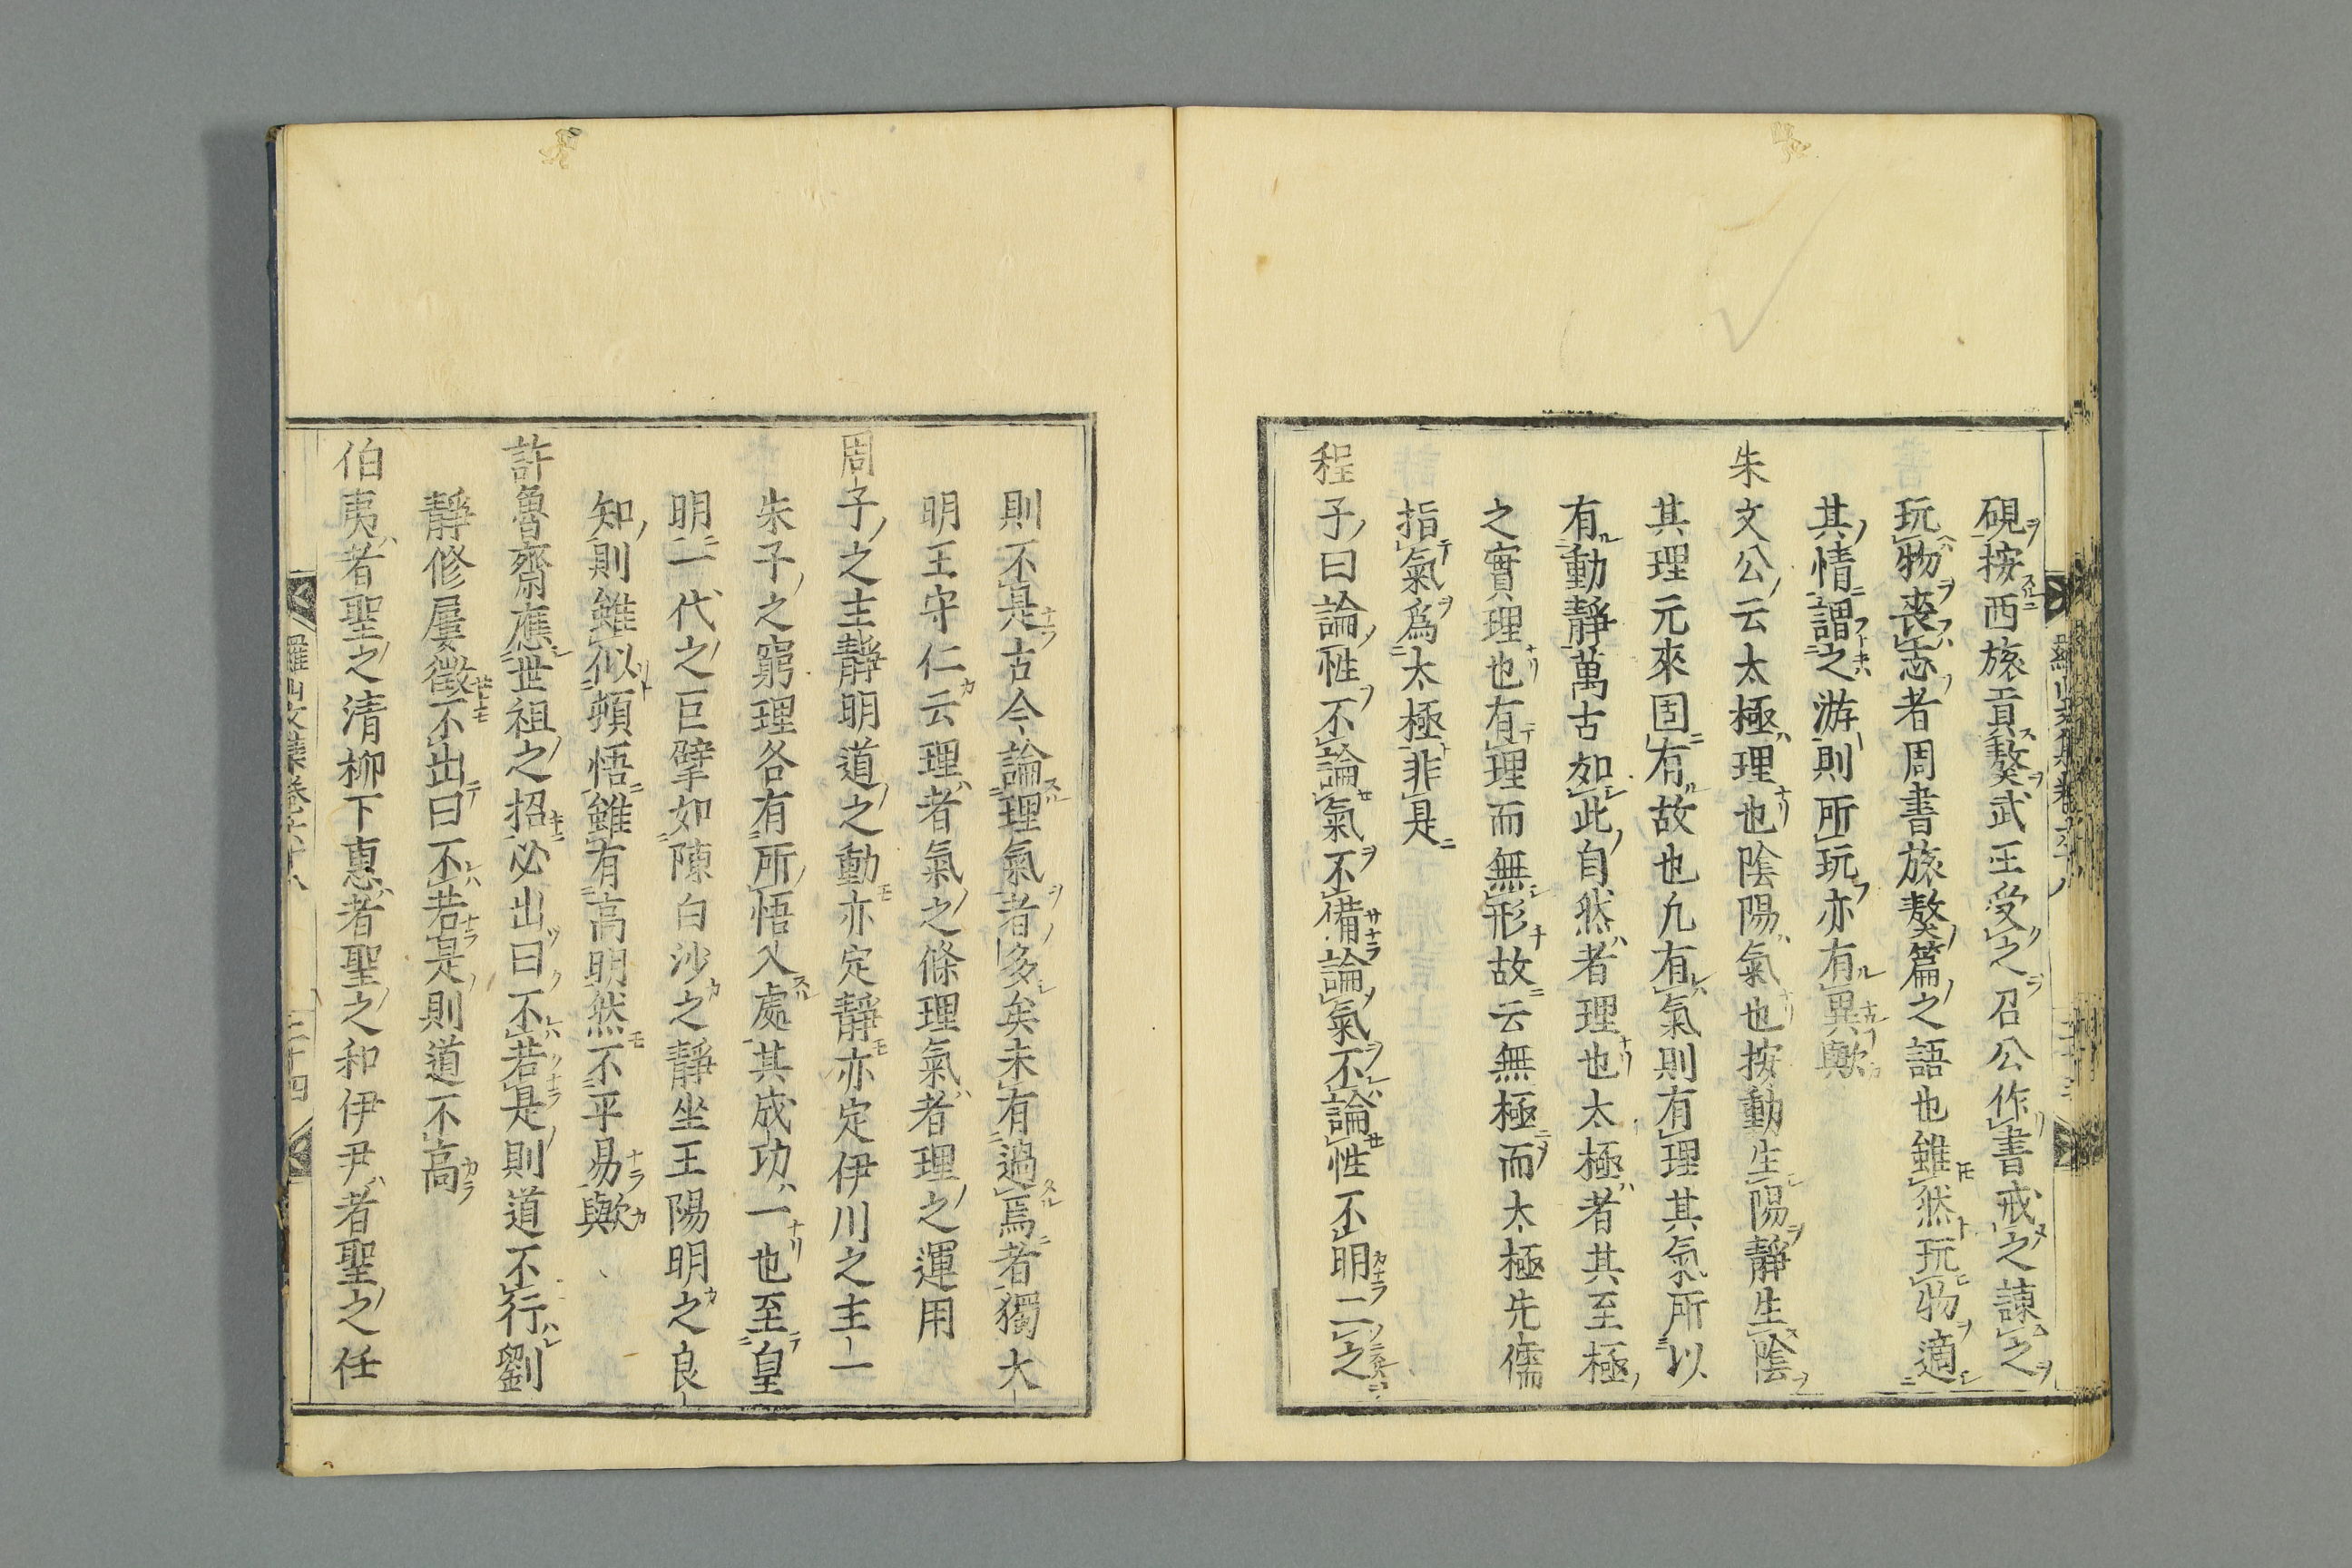 硯按西旅貢獒武王受之召公作書戒之諫之
玩物喪志者周書旅獒篇之語也雖然玩物適
其情謂之游則所玩亦有異歟
朱文公云太極理也陰陽氣也按動生陽靜生陰
其理元來固有故也凢有氣則有理其氣所以
有動靜萬古如此自然者理也太極者其至極
之實理也有理而無形故云無極而太極先儒
指氣爲太極非是
程子曰論性不論氣不備論氣不論性不明二之
則不是古今論理氣者多矣未有過焉者獨大
明王守仁云理者氣之條理氣者理之運用
周子之主靜明道之動亦定靜亦定伊川之主一
朱子之窮理各有所悟入處其成功一也至皇
明一代之巨擘如陳白沙之靜坐王陽明之良
知則雖似頓悟雖有高明然不平易歟
許魯齋應世祖之招必出曰不若是則道不行劉
靜修屢徵不出曰不若是則道不高
伯夷者聖之清柳下惠者聖之和伊尹者聖之任
羅山文集卷六十八
三十四